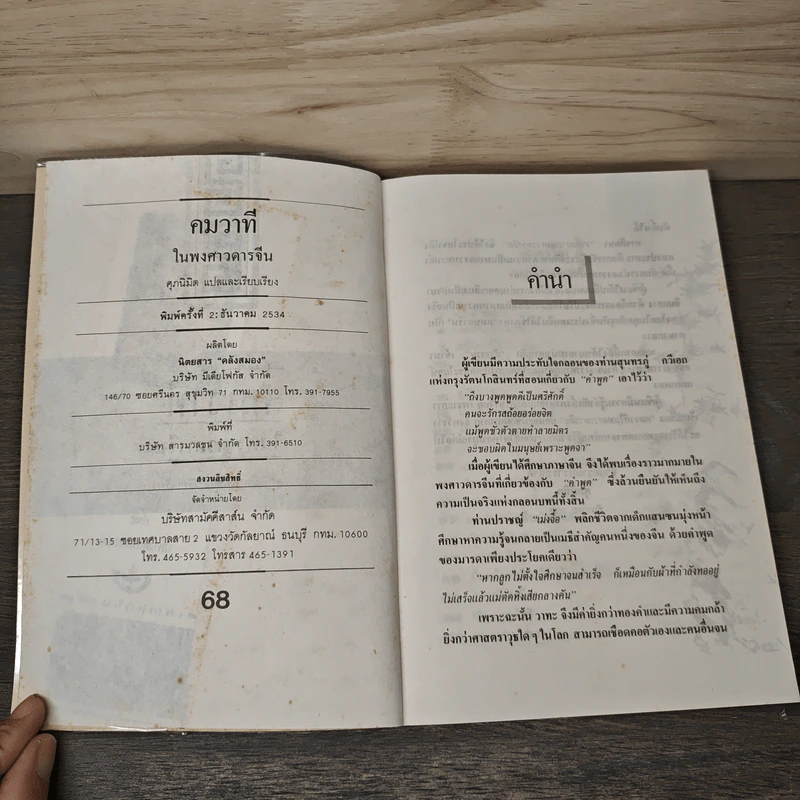 คมวาที
ในพงศาวดารจีน
ศุภนิมิต แปลและเรียบเรียง
พิมพ์ครั้งที่ 2: ธันวาคม 2534
ผลิตโดย
นิตยสาร “คลังสมอง”
บริษัท มีเดียโฟกัส จำกัด
146/70 ซอยศรีนคร สุขุมวิท 71 กทม. 10110 โทร. 391-7955
พิมพ์ที่
บริษัท สารมวลชน จำกัด โทร. 391-6510
สงวนลิขสิทธิ์
จัดจำหน่ายโดย
บริษัทสามัคคีสาส์น จำกัด
71/13-15 ซอยเทศบาลสาย 2 แขวงวัดกัลยาณ์ ธนบุรี กทม. 10600
โทร. 465-5932 โทรสาร 465-1391
68
คำนำ
ผู้เขียนมีความประทับใจกลอนของท่านสุนทรภู่ กวีเอก
แห่งกรุงรัตนโกสินทร์ที่สอนเกี่ยวกับ “คำพูด” เอาไว้ว่า
“ถึงบางพูดพูดดีเป็นศรีศักดิ์
คนจะรักรสถ้อยอร่อยจิต
แม้พูดชั่วตัวตายทำลายมิตร
จะชอบผิดในมนุษย์เพราะพูดจา”
เมื่อผู้เขียนได้ศึกษาภาษาจีน จึงได้พบเรื่องราวมากมายใน
พงศาวดารจีนที่เกี่ยวข้องกับ “คำพูด” ซึ่งล้วนยืนยันให้เห็นถึง
ความเป็นจริงแห่งกลอนบทนี้ทั้งสิ้น
ท่านปราชญ์ “เม่งจื๊อ” พลิกชีวิตจากเด็กแสนซนมุ่งหน้า
ศึกษาหาความรู้จนกลายเป็นเมธีสำคัญคนหนึ่งของจีน ด้วยคำพูด
ของมารดาเพียงประโยคเดียวว่า
“หากลูกไม่ตั้งใจศึกษาจนสำเร็จ ก็เหมือนกับผ้าที่กำลังทออยู่
ไม่เสร็จแล้วแม่ตัดทิ้งเสียกลางคัน”
เพราะฉะนั้น วาทะ จึงมีค่ายิ่งกว่าทองคำและมีความคมกล้า
ยิ่งกว่าศาสตราวุธใด ๆ ในโลก สามารถเชือดคอตัวเองและคนอื่นจน